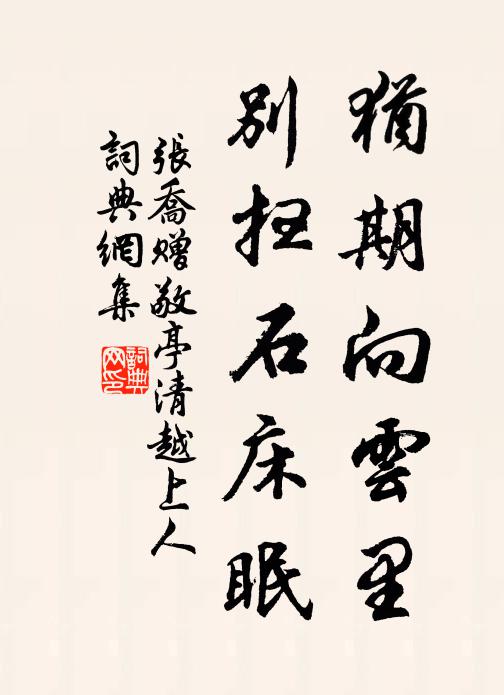 猶期向雲里
別扫石床眠
張喬贈敬亭清越上人
詞典網集
詞典
网印